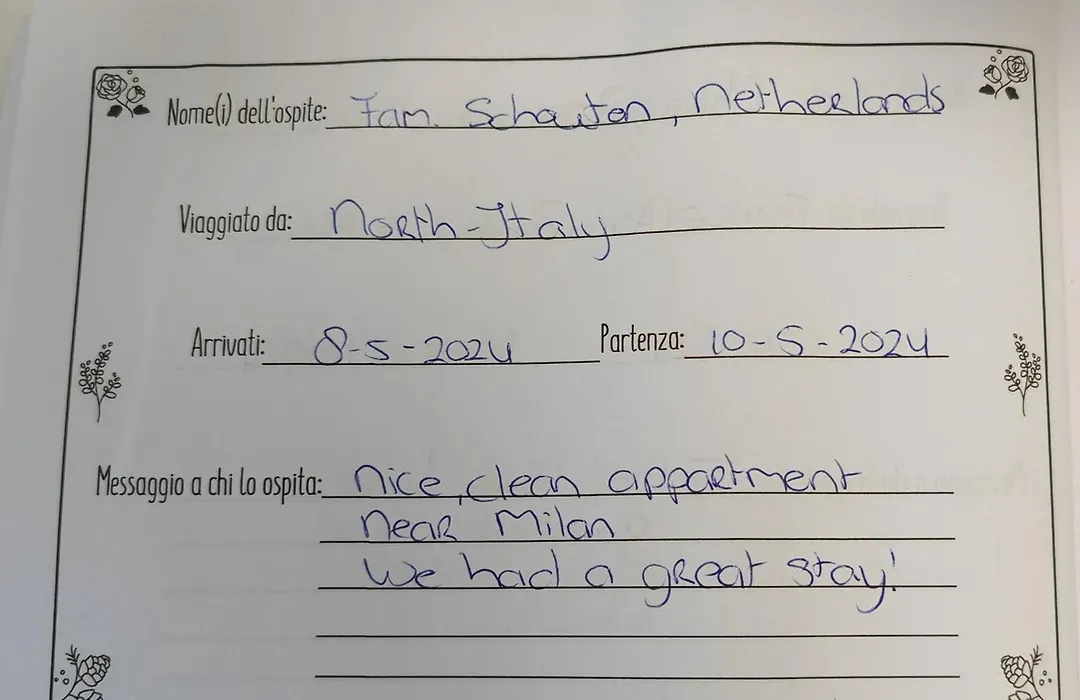 Nome(i) dell'ospite: Fam. Schouten, Netherlands
Viaggiato da: North-Italy
Arrivati: 8-5-2024 Partenza: 10-5-2024
Messaggio a chi lo ospita: nice, clean appartment
near Milan
We had a great stay!